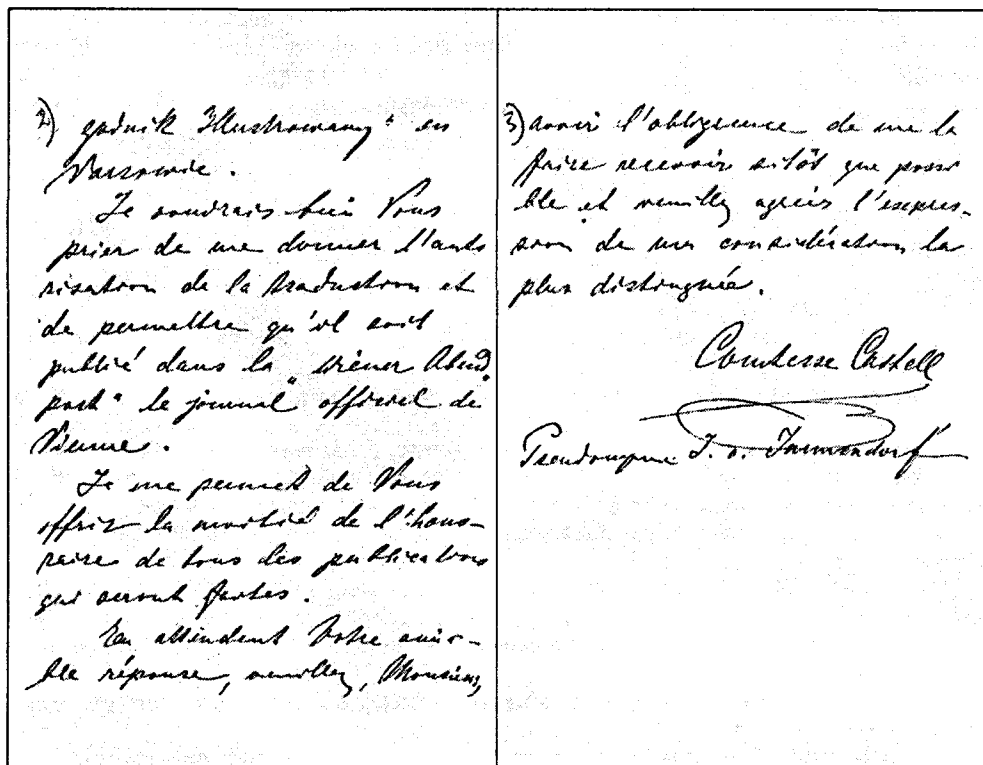 2) godnik Illustrowany" en
Varsovie.
Je voudrais bien Vous
prier de me donner l'auto
risation de la traduction et
de permettre qu'il soit
publié dans la "Wiener Abend
post" le journal officiel de
Vienne.
Je me permets de Vous
offrir la moitié de l'hono-
raire de tous les publications
qui seront faites.
En attendent Votre aima-
ble réponse, veuillez, Monsieur,
3) avoir l'obligence de me la
faire recevoir sitôt que possi
ble et veuillez agréer l'expres-
sion de ma considération la
plus distinguée.
Comtesse Castell
Pseudonyme J. v.